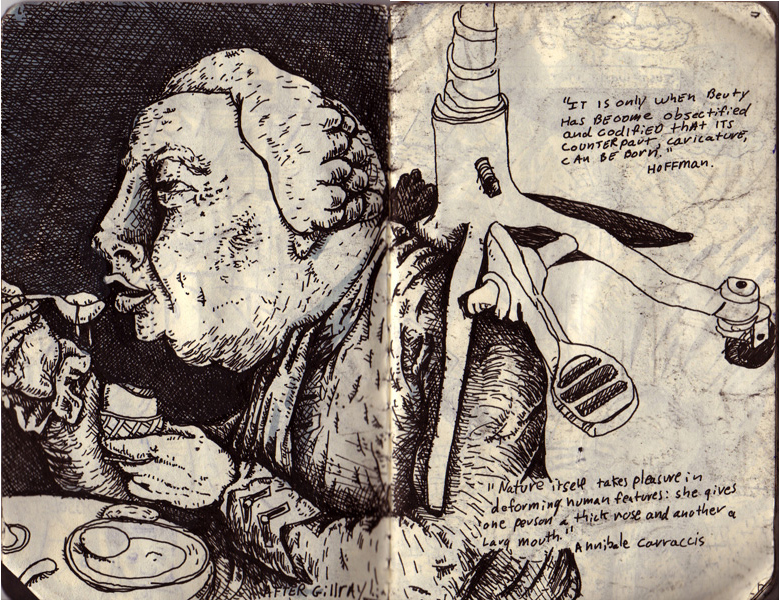 "IT IS ONLY WHEN BEUTY
HAS BECOME OBSECTIFIED
AND CODIFIED THAT ITS
COUNTERPART, CARICATURE,
CAN BE BORN."
HOFFMAN.
"Nature itself takes pleasure in
deforming human features: she gives
one person a thick nose and another a
larg mouth."
Annibale Carraccis
AFTER Gillray